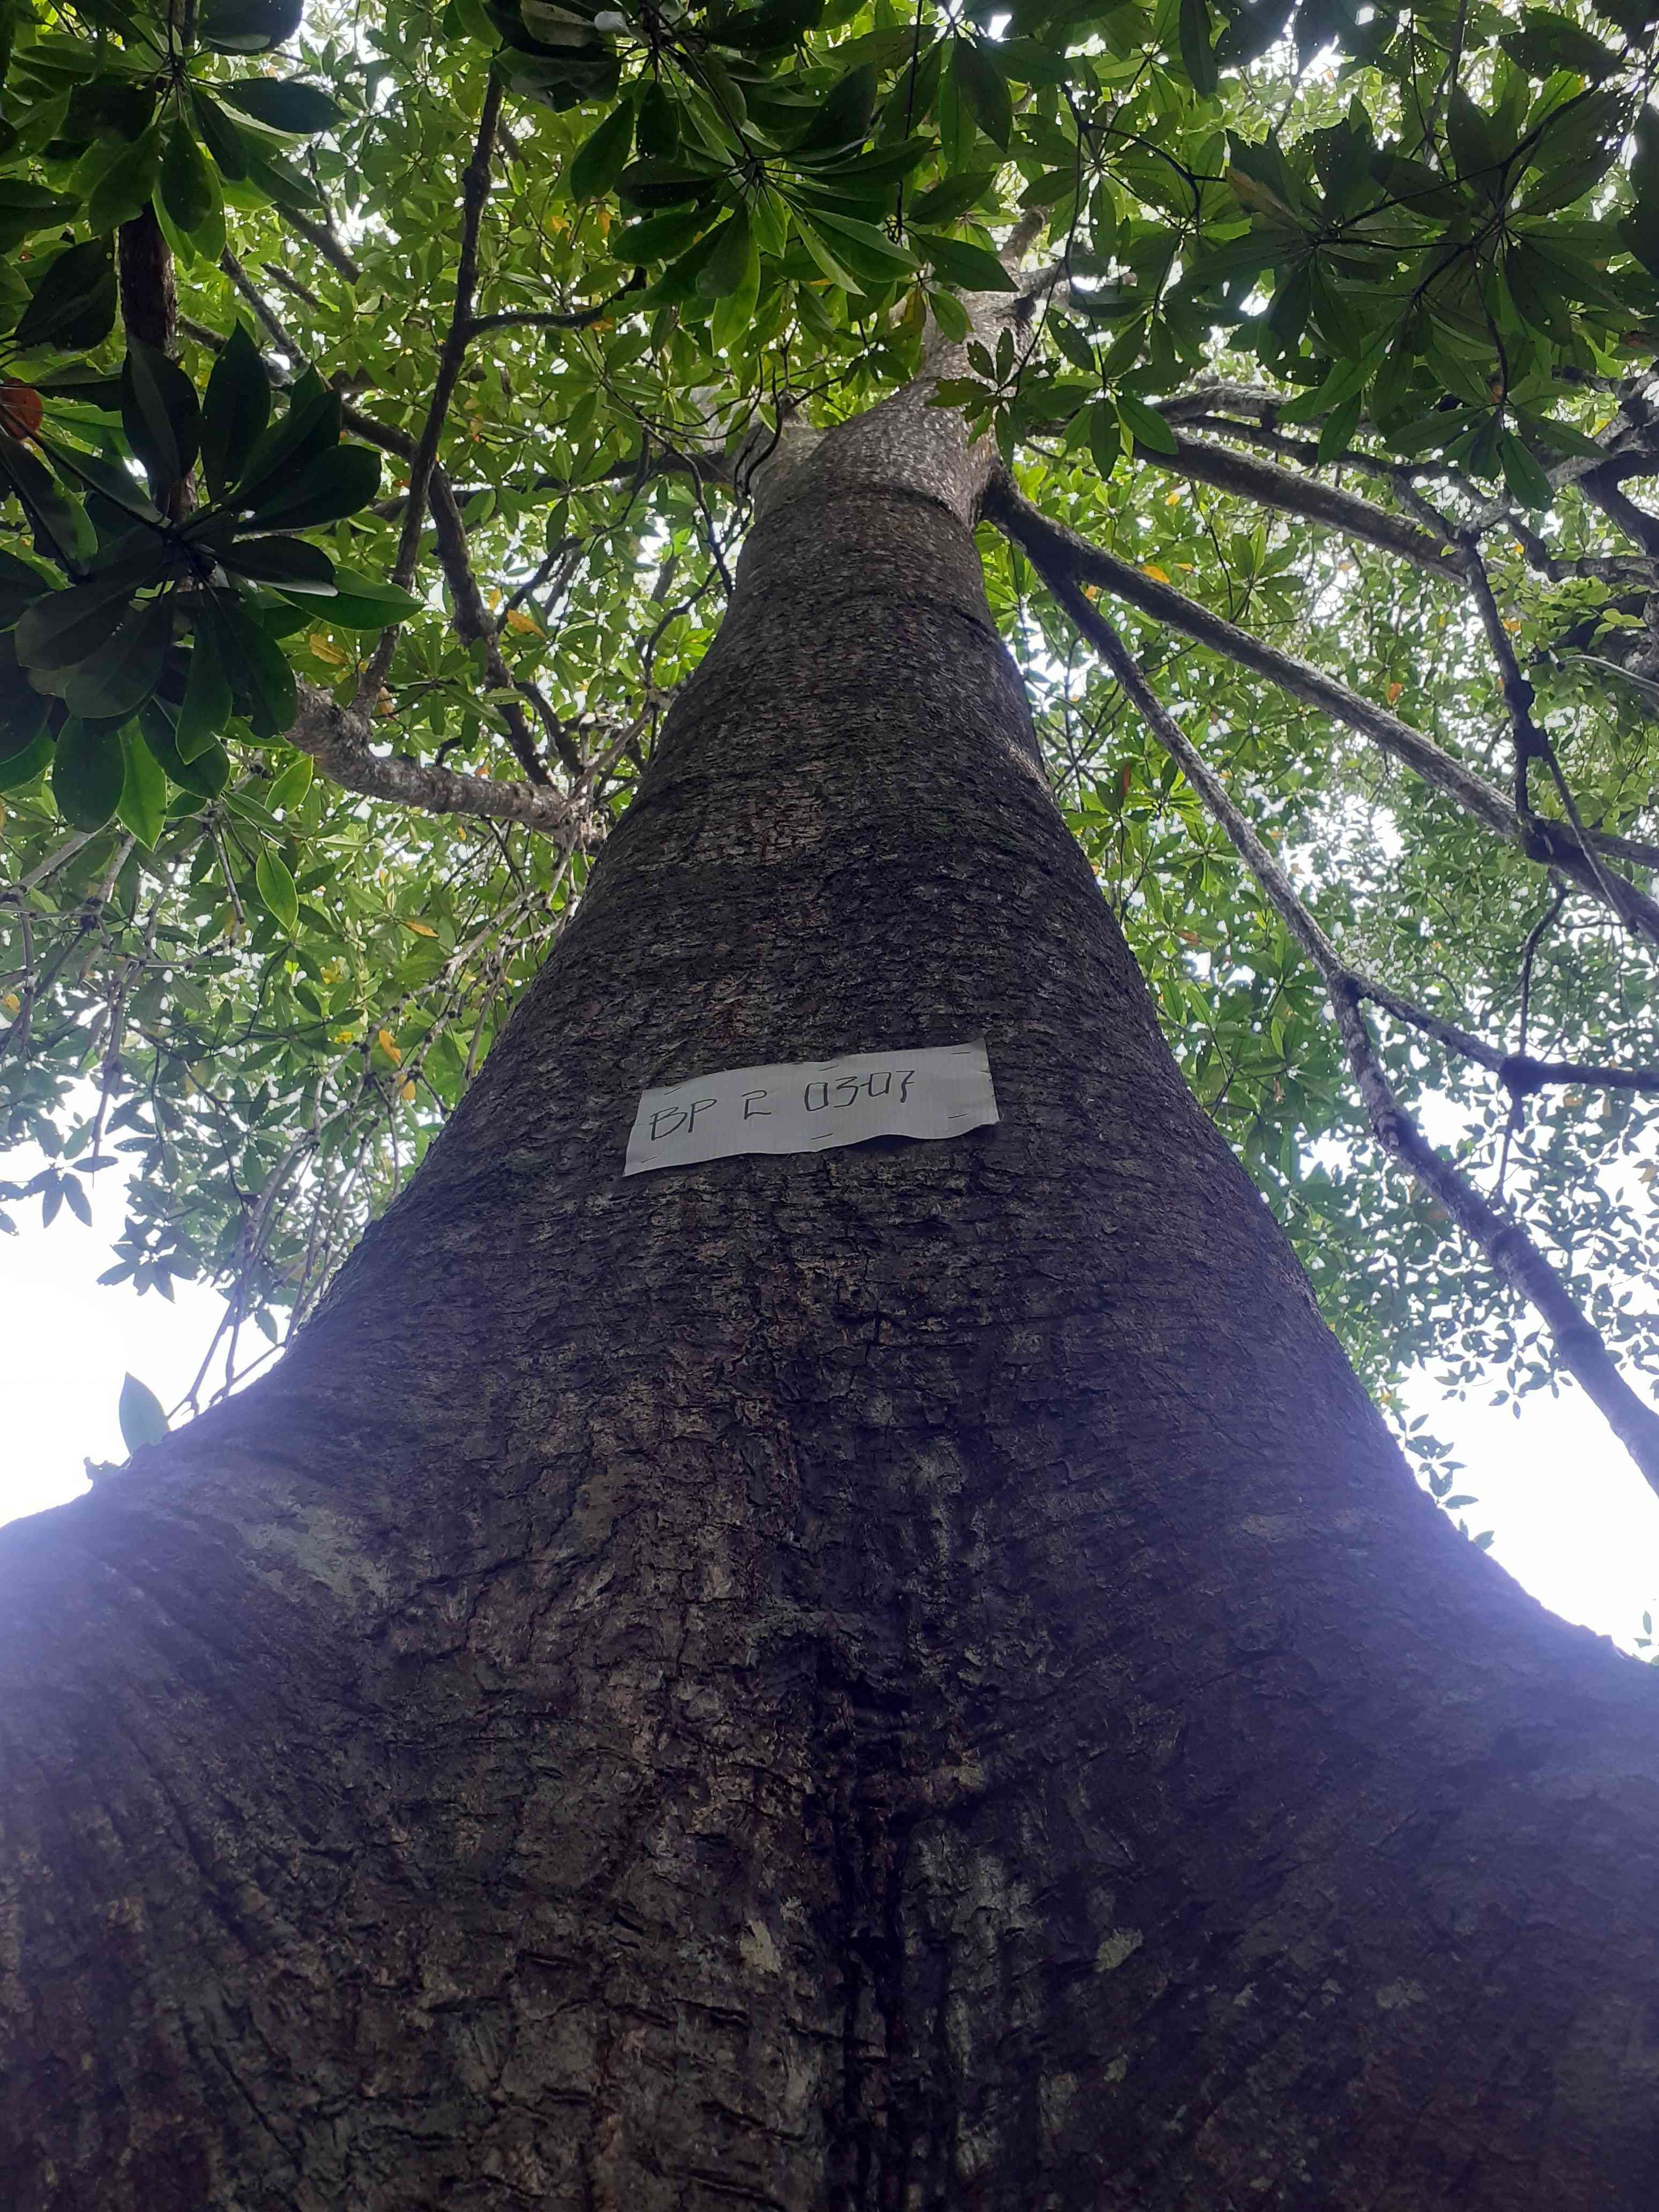 BP 2 0307